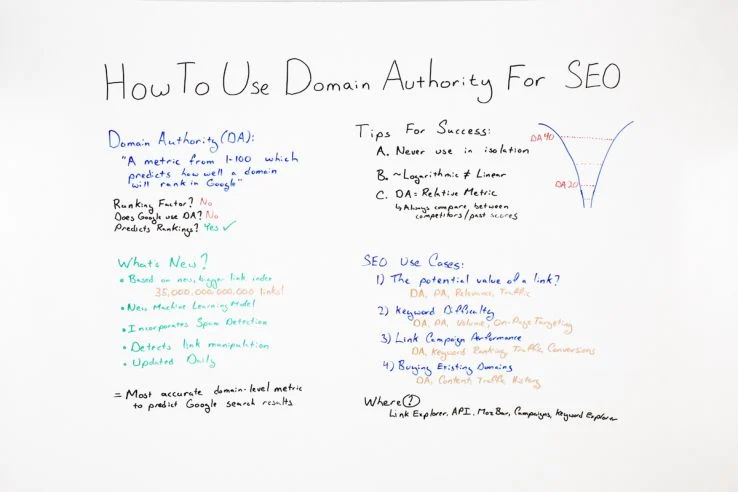 How To Use Domain Authority For SEO
Domain Authority (DA):
"A metric from 1-100 which
predicts how well a domain
will rank in Google"
Ranking Factor? No
Does Google use DA? No
Predicts Rankings? Yes ✓
What's New?
• Based on new, bigger link index
35,000,000,000,000 links!
• New Machine Learning Model
• Incorporates Spam Detection
• Detects link manipulation
• Updated Daily
= Most accurate domain-level metric
to predict Google search results
Tips For Success:
A. Never use in isolation
B. ~Logarithmic ≠ Linear
C. DA = Relative Metric
↳ Always compare, between
competitors/past scores
DA 40
DA 20
SEO Use Cases:
1) The potential value of a link?
DA, PA, Relevance, Traffic
2) Keyword Difficulty
DA, PA, Volume, On-Page Targeting
3) Link Campaign Performance
DA, Keyword Ranking, Traffic, Conversions
4) Buying Existing Domains
DA, Content, Traffic, History
Where?
Link Explorer, API, MozBar, Campaigns, Keyword Explorer